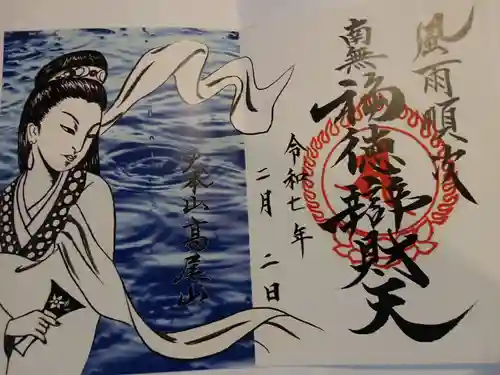 風雨順次
南無
福徳辯財天
令和七年
二月二日
大本山髙尾山